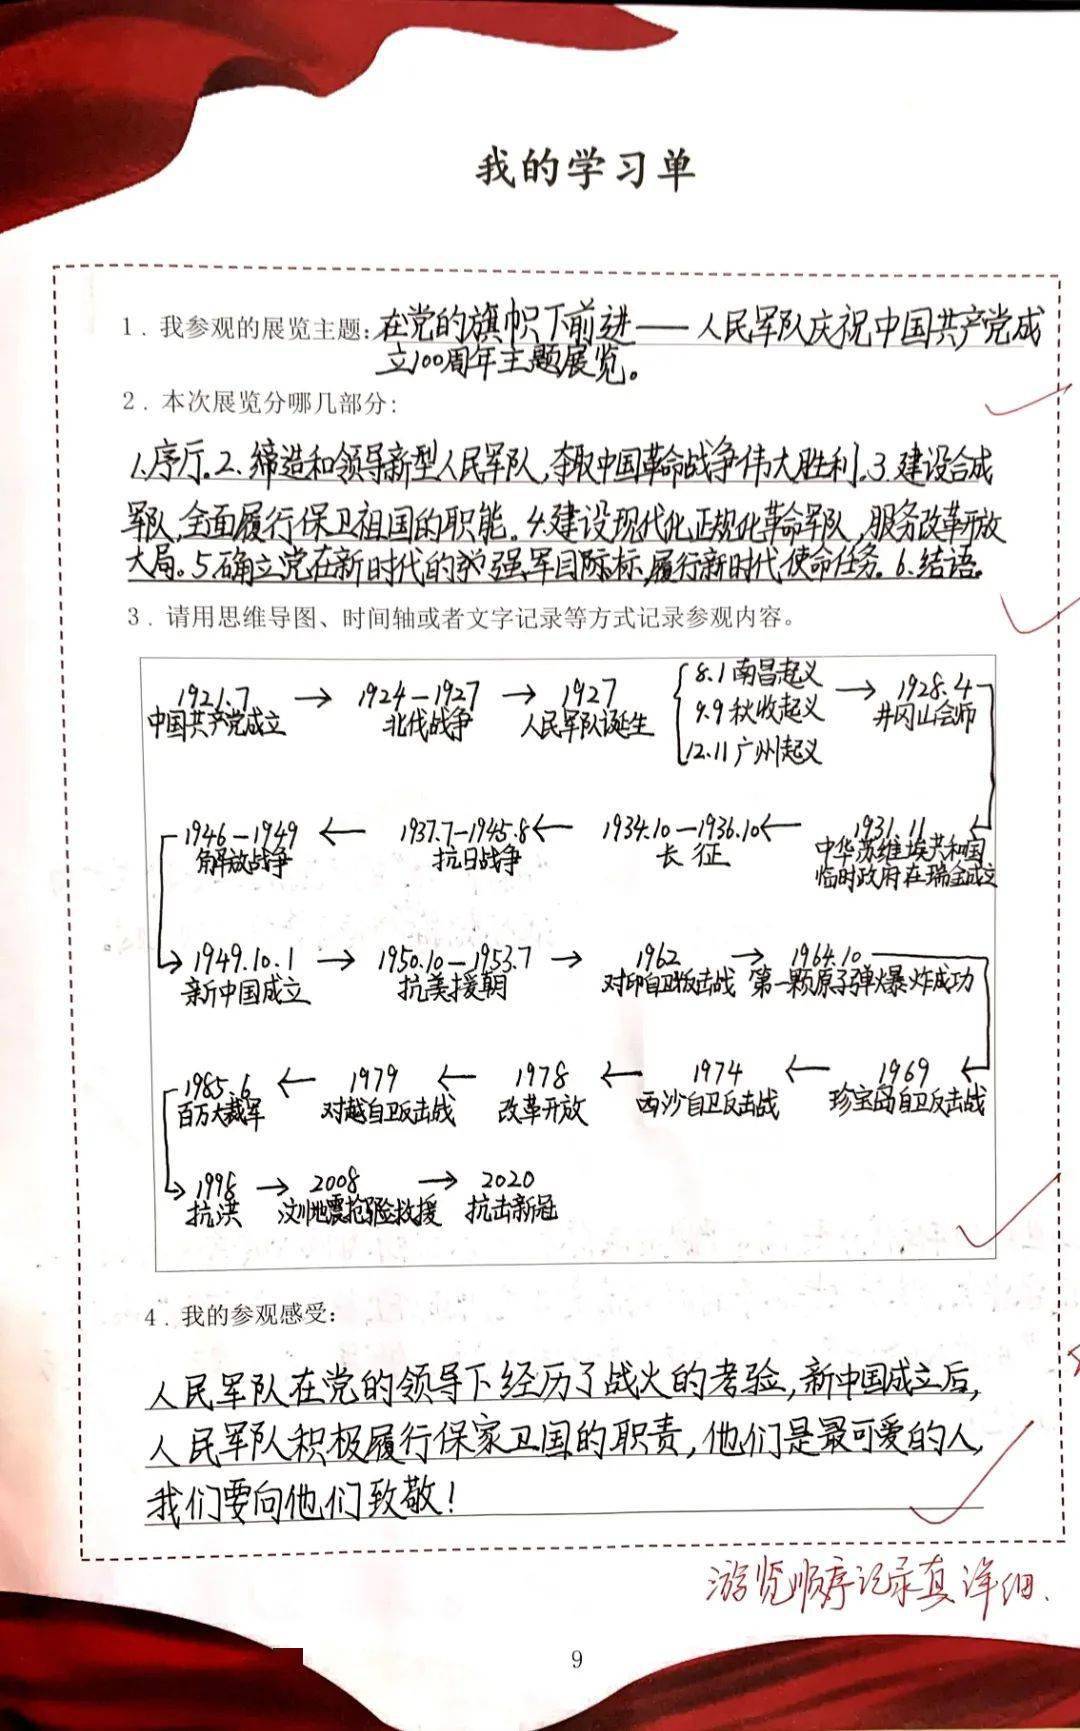 我的学习单
1.我参观的展览主题:在党的旗帜下前进——人民军队庆祝中国共产党成
立100周年主题展览。
2.本次展览分哪几部分:
1.序厅.2.缔造和领导新型人民军队,夺取中国革命战争伟大胜利.3.建设合成
军队,全面履行保卫祖国的职能。4.建设现代化正规化革命军队,服务改革开放
大局。5.确立党在新时代的强军目标,履行新时代使命任务。6.结语。
3.请用思维导图、时间轴或者文字记录等方式记录参观内容。
1921.7 → 1924—1927 → 1927 { 8.1南昌起义 → 1928.4
中国共产党成立 北伐战争 人民军队诞生 9.9秋收起义 井冈山会师
12.11广州起义
1946—1949 ← 1937.7—1945.8 ← 1934.10—1936.10 ← 1931.11
解放战争 抗日战争 长征 中华苏维埃共和国
临时政府在瑞金成立
1949.10.1 → 1950.10—1953.7 → 1962 → 1964.10
新中国成立 抗美援朝 对印自卫反击战 第一颗原子弹爆炸成功
1985.6 ← 1979 ← 1978 ← 1974 ← 1969
百万大裁军 对越自卫反击战 改革开放 西沙自卫反击战 珍宝岛自卫反击战
1998 → 2008 → 2020
抗洪 汶川地震抢险救援 抗击新冠
4.我的参观感受:
人民军队在党的领导下经历了战火的考验,新中国成立后,
人民军队积极履行保家卫国的职责,他们是最可爱的人,
我们要向他们致敬!
游览顺序记录真详细.
9